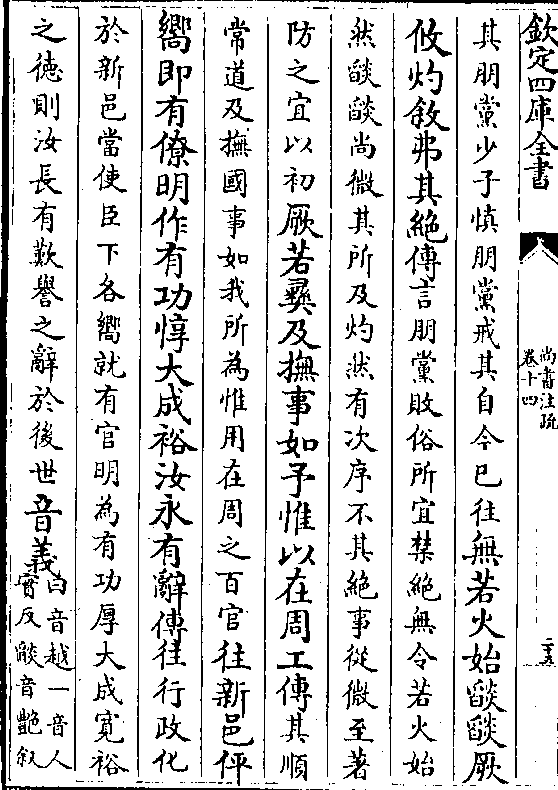 欽定四庫全書
尚書注疏
卷十四
二十五
其朋黨少子慎朋黨戒其自今已往無若火始燄燄厥
攸灼敘弗其絶傳言朋黨敗俗所宜禁絶無令若火始
然燄燄尚微其所及灼然有次序不其絶事從微至著
防之宜以初厥若彞及撫事如予惟以在周工傳其順
常道及撫國事如我所為惟用在周之百官往新邑伻
嚮即有僚明作有功惇大成裕汝永有辭傳往行政化
於新邑當使臣下各嚮就有官明為有功厚大成寛裕
之徳則汝長有歎譽之辭於後世音義曰音越一音人
實反燄音艶叙